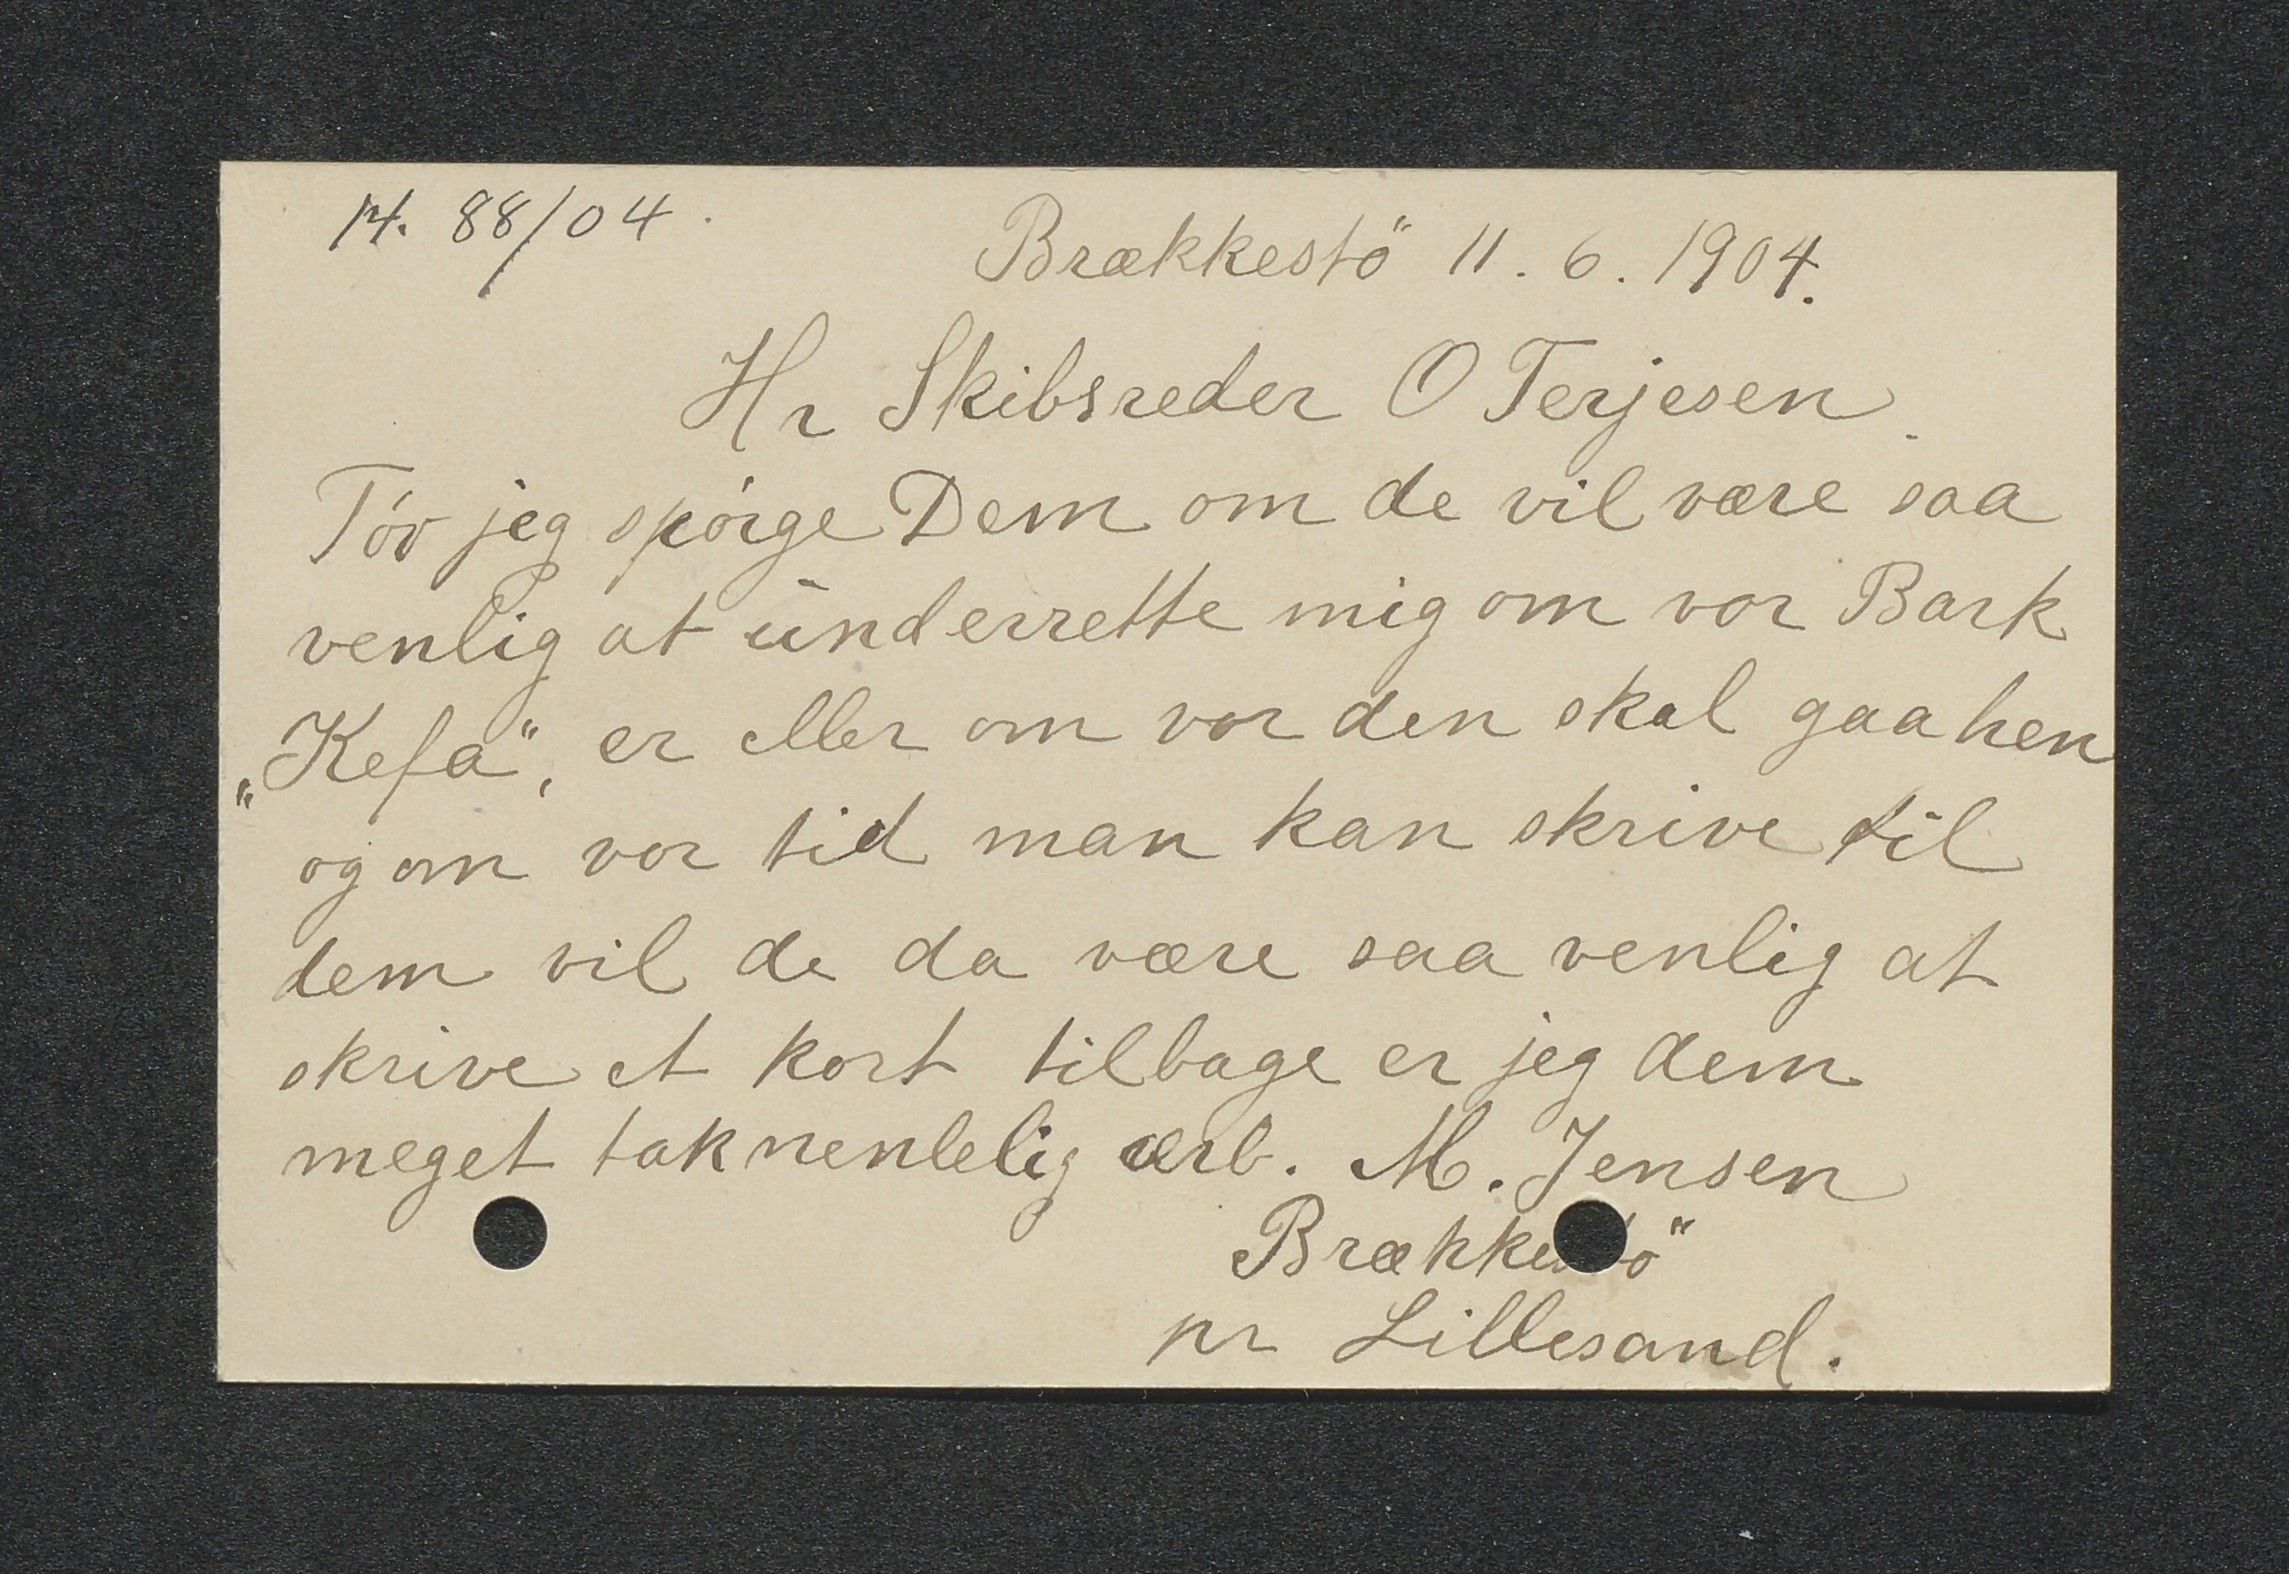 14. 88/04.
Brækkestö 11. 6. 1904.
Hr Skibsreder O Terjesen.
Tör jeg spörge Dem om de vil være saa
venlig at ünderrette mig om vor Bark
„Kefa“, er eller om vor den skal gaa hen
og om vor tid man kan skrive til
dem vil de da være saa venlig at
skrive et kort tilbage er jeg dem
meget taknenlelig ærb. M. Jensen
Brækkestö
pr Lillesand.